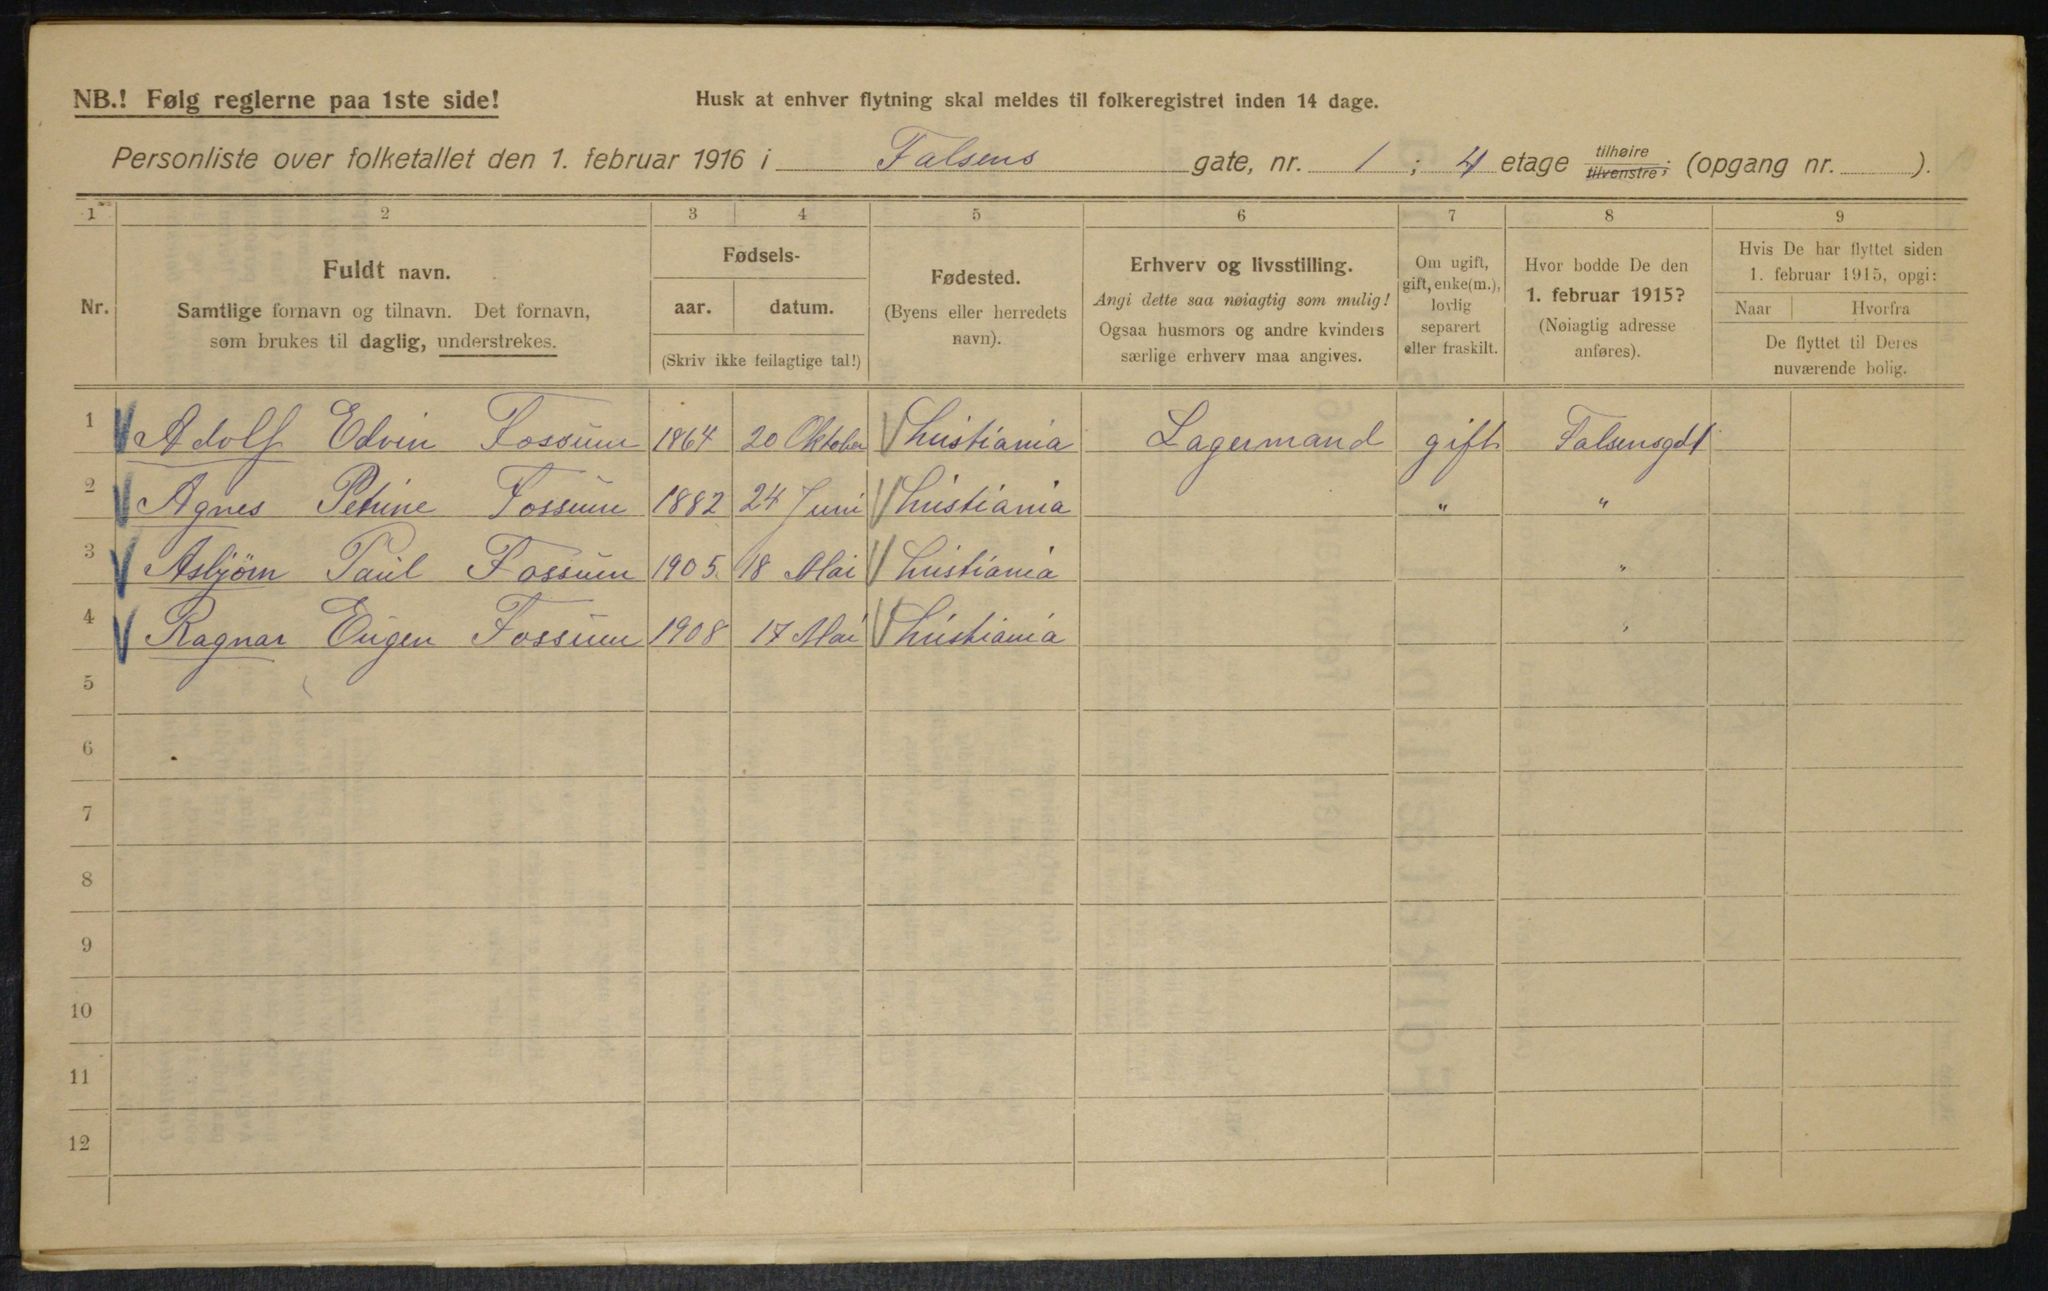 NB.! Følg reglerne paa 1ste side!
Husk at enhver flytning skal meldes til folkeregistret inden 14 dage.
Personliste over folketallet den 1. februar 1916 i Falsens gate, nr. 1 ; 4 etage tilhøire tilvenstre; (opgang nr. ).
1 2 3 4 5 6 7 8 9
Nr.
Fuldt navn.
Samtlige fornavn og tilnavn. Det fornavn,
som brukes til daglig, understrekes.
Fødsels-
aar. datum.
(Skriv ikke feilagtige tal!)
Fødested.
(Byens eller herredets
navn).
Erhverv og livsstilling.
Angi dette saa nøiagtig som mulig!
Ogsaa husmors og andre kvinders
særlige erhverv maa angives.
Om ugift,
gift, enke(m.),
lovlig
separert
eller fraskilt.
Hvor bodde De den
1. februar 1915?
(Nøiagtig adresse
anføres).
Hvis De har flyttet siden
1. februar 1915, opgi:
Naar Hvorfra
De flyttet til Deres
nuværende bolig.
1 Adolf Edvin Fossum 1864 20 Oktober Kristiania Lagermand gift Falsensgd 1
2 Agnes Petrine Fossum 1882 24 Juni Kristiania " "
3 Asbjørn Paul Fossum 1905. 18 Mai Kristiania "
4 Ragnar Eugen Fossum 1908 17 Mai Kristiania "
5
6
7
8
9
10
11
12